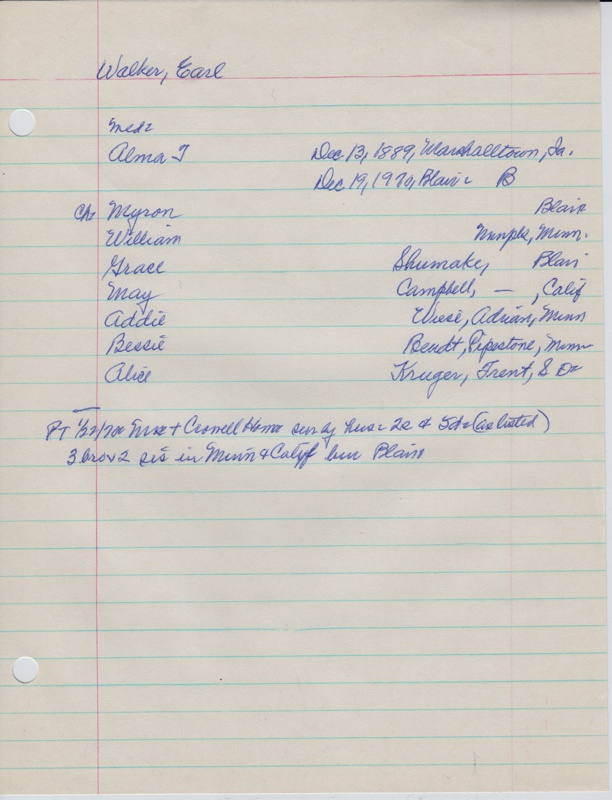 Walker, Earl
med 2
Alma T Dec 13, 1889, Marshalltown, Ia.
Dec 19, 1970, Blair B
Ch: Myron Blair
William Mnnpls, Minn.
Grace Shumake, Blair
May Campbell, — , Calif
Addie Wiese, Adrian, Minn
Bessie Bendt, Pipestone, Minn
Alice Kruger, Trent, S D
PT Crowell Home surv by hus 2s & 5d (as listed)
3 bro & 2 sis in Minn & Calif bur Blair